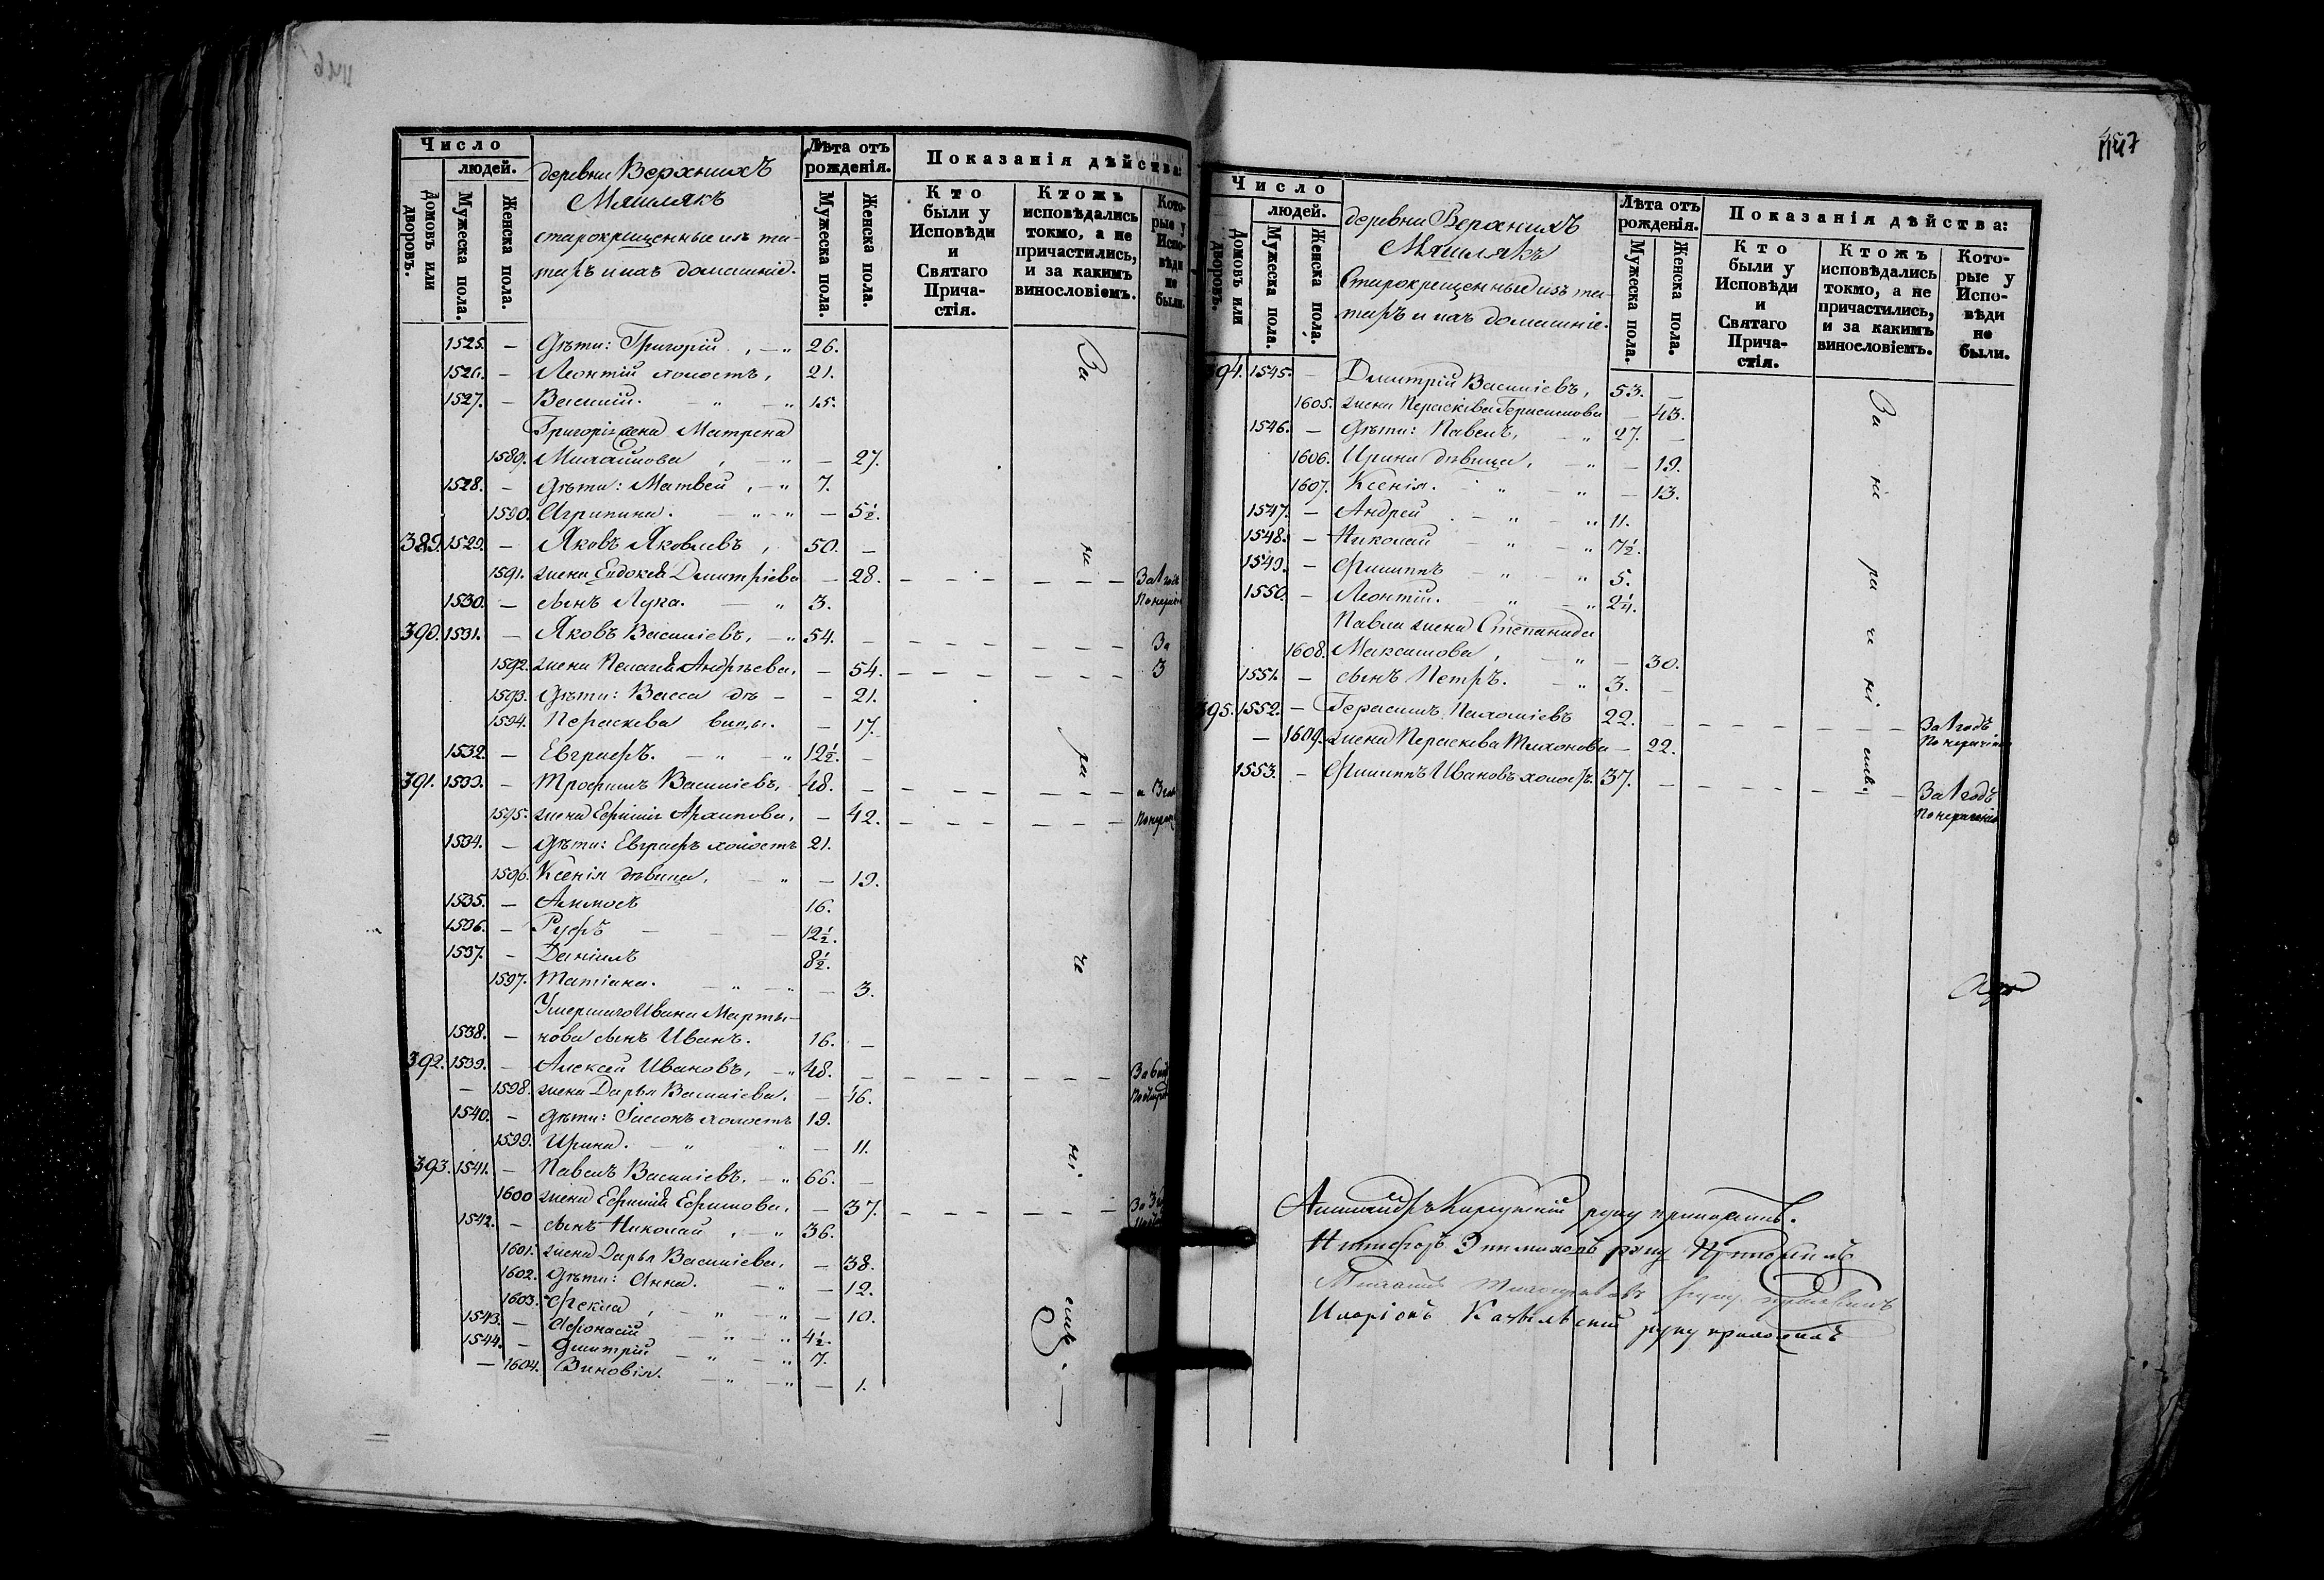 Число
людей.
Домовъ или дворовъ.
Мужеска пола.
Женска пола.
деревни Верхнихъ
Мяшлякъ
старокрещенные изъ та-
таръ и ихъ домашніе.
Лѣта отъ рожденія.
Мужеска пола.
Женска пола.
Показанія дѣйства:
Кто были у Исповѣди и Святаго Причастія.
Ктожъ исповѣдались токмо, а не причастились, и за какимъ винословіемъ.
Которые у Исповѣди не были.
1525. — Дѣти: Григорій — " 26.
1526. — Леонтій холостъ, 21.
1527. — Василій. — " — " 15.
Григорія жена Матрена
1589. Михайлова, — " — 27.
1528. — Дѣти: Матвей, — " 7.
1590. Агрипина. — " — " — 5½.
389. 1529. — Яковъ Яковлевъ, 50. —
1591. жена Евдокія Димитріева — 28. — — — — — — За 1 годъ
1530. — сынъ Лука. — " 3.
390. 1531. — Яковъ Василіевъ, — " 54. — — — — — — — За
1592. жена Пелагія Андрѣева, — 54. — — — — — — 3
1593. Дѣти: Васса дѣ — — 21.
1594. Параскева вицы. — 17.
1532. — Евграфъ. — " — " 12½. —
391. 1533. — Трофимъ Василіевъ, 48. —
1595. жена Ефимія Архипова, — 42.
1534. — Дѣти: Евграфъ холостъ 21.
1596. Ксенія дѣвица, — " — 19.
1535. — Аммосъ 16.
1536. — Руфъ — — — 12½.
1537. — Даніилъ 8½.
1597. Татіана. — " — " — 3.
Умершаго Ивана Марты-
1538. — нова сынъ Иванъ. 16. —
392. 1539. — Алексей Ивановъ, — " 48. —
— 1598. жена Дарья Василіева. — 46.
1540. — Дѣти: Іассонъ холостъ 19.
1599. Ирина. — " " — 11.
393. 1541. — Павелъ Василіевъ. — " 66. —
1600 жена Ефимія Ефимова, — 37.
1542. — сынъ Николай, — " 36.
1601. жена Дарья Василіева, — 38.
1602. Дѣти: Анна. — " — 12.
1603. Фекла, — " — " — 10.
1543. — Афонасій — " — " 4½.
1544. — Димитрій — " — " 7.
— 1604. Зиновія. — " — " — 1.
За не ра че ні емъ.
447
Число
людей.
Домовъ или дворовъ.
Мужеска пола.
Женска пола.
деревни Верхнихъ
Мяшлякъ
Старокрещенные изъ та-
таръ и ихъ домашніе.
Лѣта отъ рожденія.
Мужеска пола.
Женска пола.
Показанія дѣйства:
Кто были у Исповѣди и Святаго Причастія.
Ктожъ исповѣдались токмо, а не причастились, и за какимъ винословіемъ.
Которые у Исповѣди не были.
394. 1545. — Дмитрій Василіевъ, 53. —
1605. жена Параскева Герасимова — 43.
1546. — Дѣти: Павелъ, — " 27. —
1606. Ирина дѣвица, — " — 19.
1607. Ксенія. — " — " — 13.
1547. — Андрей — " — " 11.
1548. — Николай — " — " 7½.
1549. — Филиппъ — " — " 5.
1550. — Леонтій. — " — " 2¼.
Павла жена Степанида
1608. Максимова, — " — 30.
1551. — сынъ Петръ. — " 3. —
395. 1552. — Герасимъ Пахоміевъ 22. — — — — — — За 1 годъ
— 1609. жена Параскева Тихонова — 22. По нераченію
1553. — Филиппъ Ивановъ холостъ. 37. — — — — — — За 1 годъ
По нераченію
За не ра че ні емъ.
руку приложилъ.
руку Приложилъ
руку приложилъ
Иларіонъ руку приложилъ